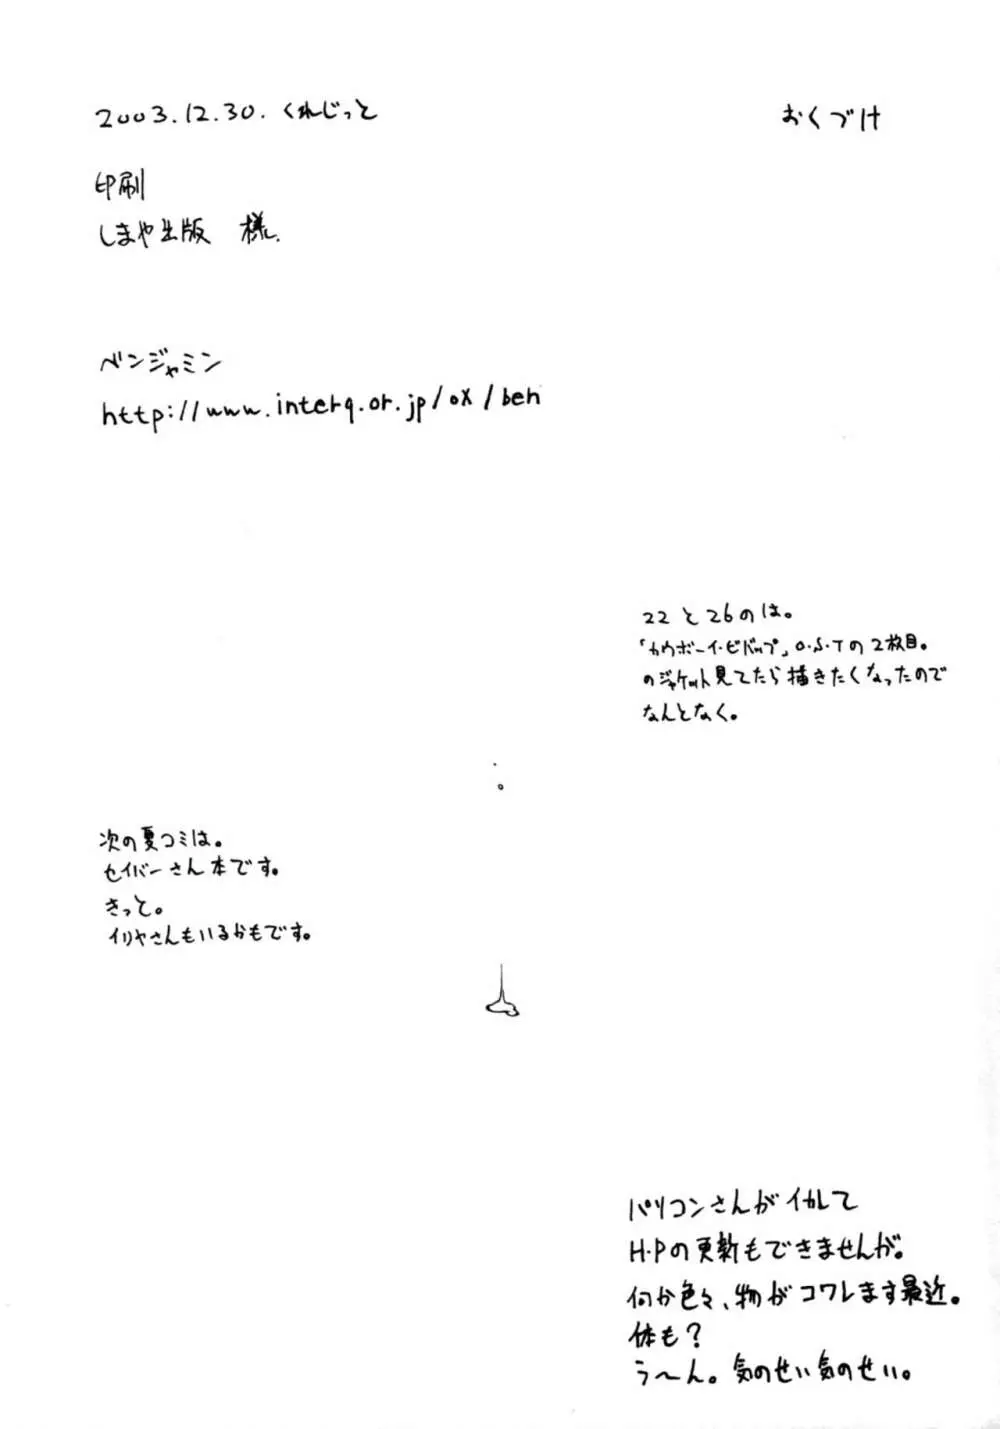 おくづけ
2003.12.30. くれじっと
印刷
しまや出版 様
ベンジャミン
http://www.interq.or.jp/ox/ben
22と26のは。
「カウボーイ・ビバップ」O・S・Tの2枚目。
のジャケット見てたら描きたくなったので
なんとなく。
次の夏コミは。
セイバーさん本です。
きっと。
イリヤさんもいるかもです。
パソコンさんがイカレて
H・Pの更新もできませんが。
何か色々、物がコワレます最近。
体も?
う〜ん。気のせい気のせい。